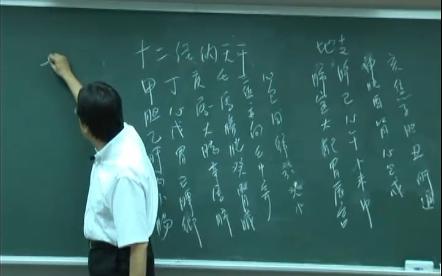 十二经纳天干
甲胆乙肝丙小腸
丁心戊胃己脾鄉
庚属大腸辛属肺
壬属膀胱癸腎藏
三焦亦向壬中寄
包同歸
地支
肺寅大卯胃辰宫
脾巳心午小未中
申胱酉腎心包戌
亥焦子胆丑肝通